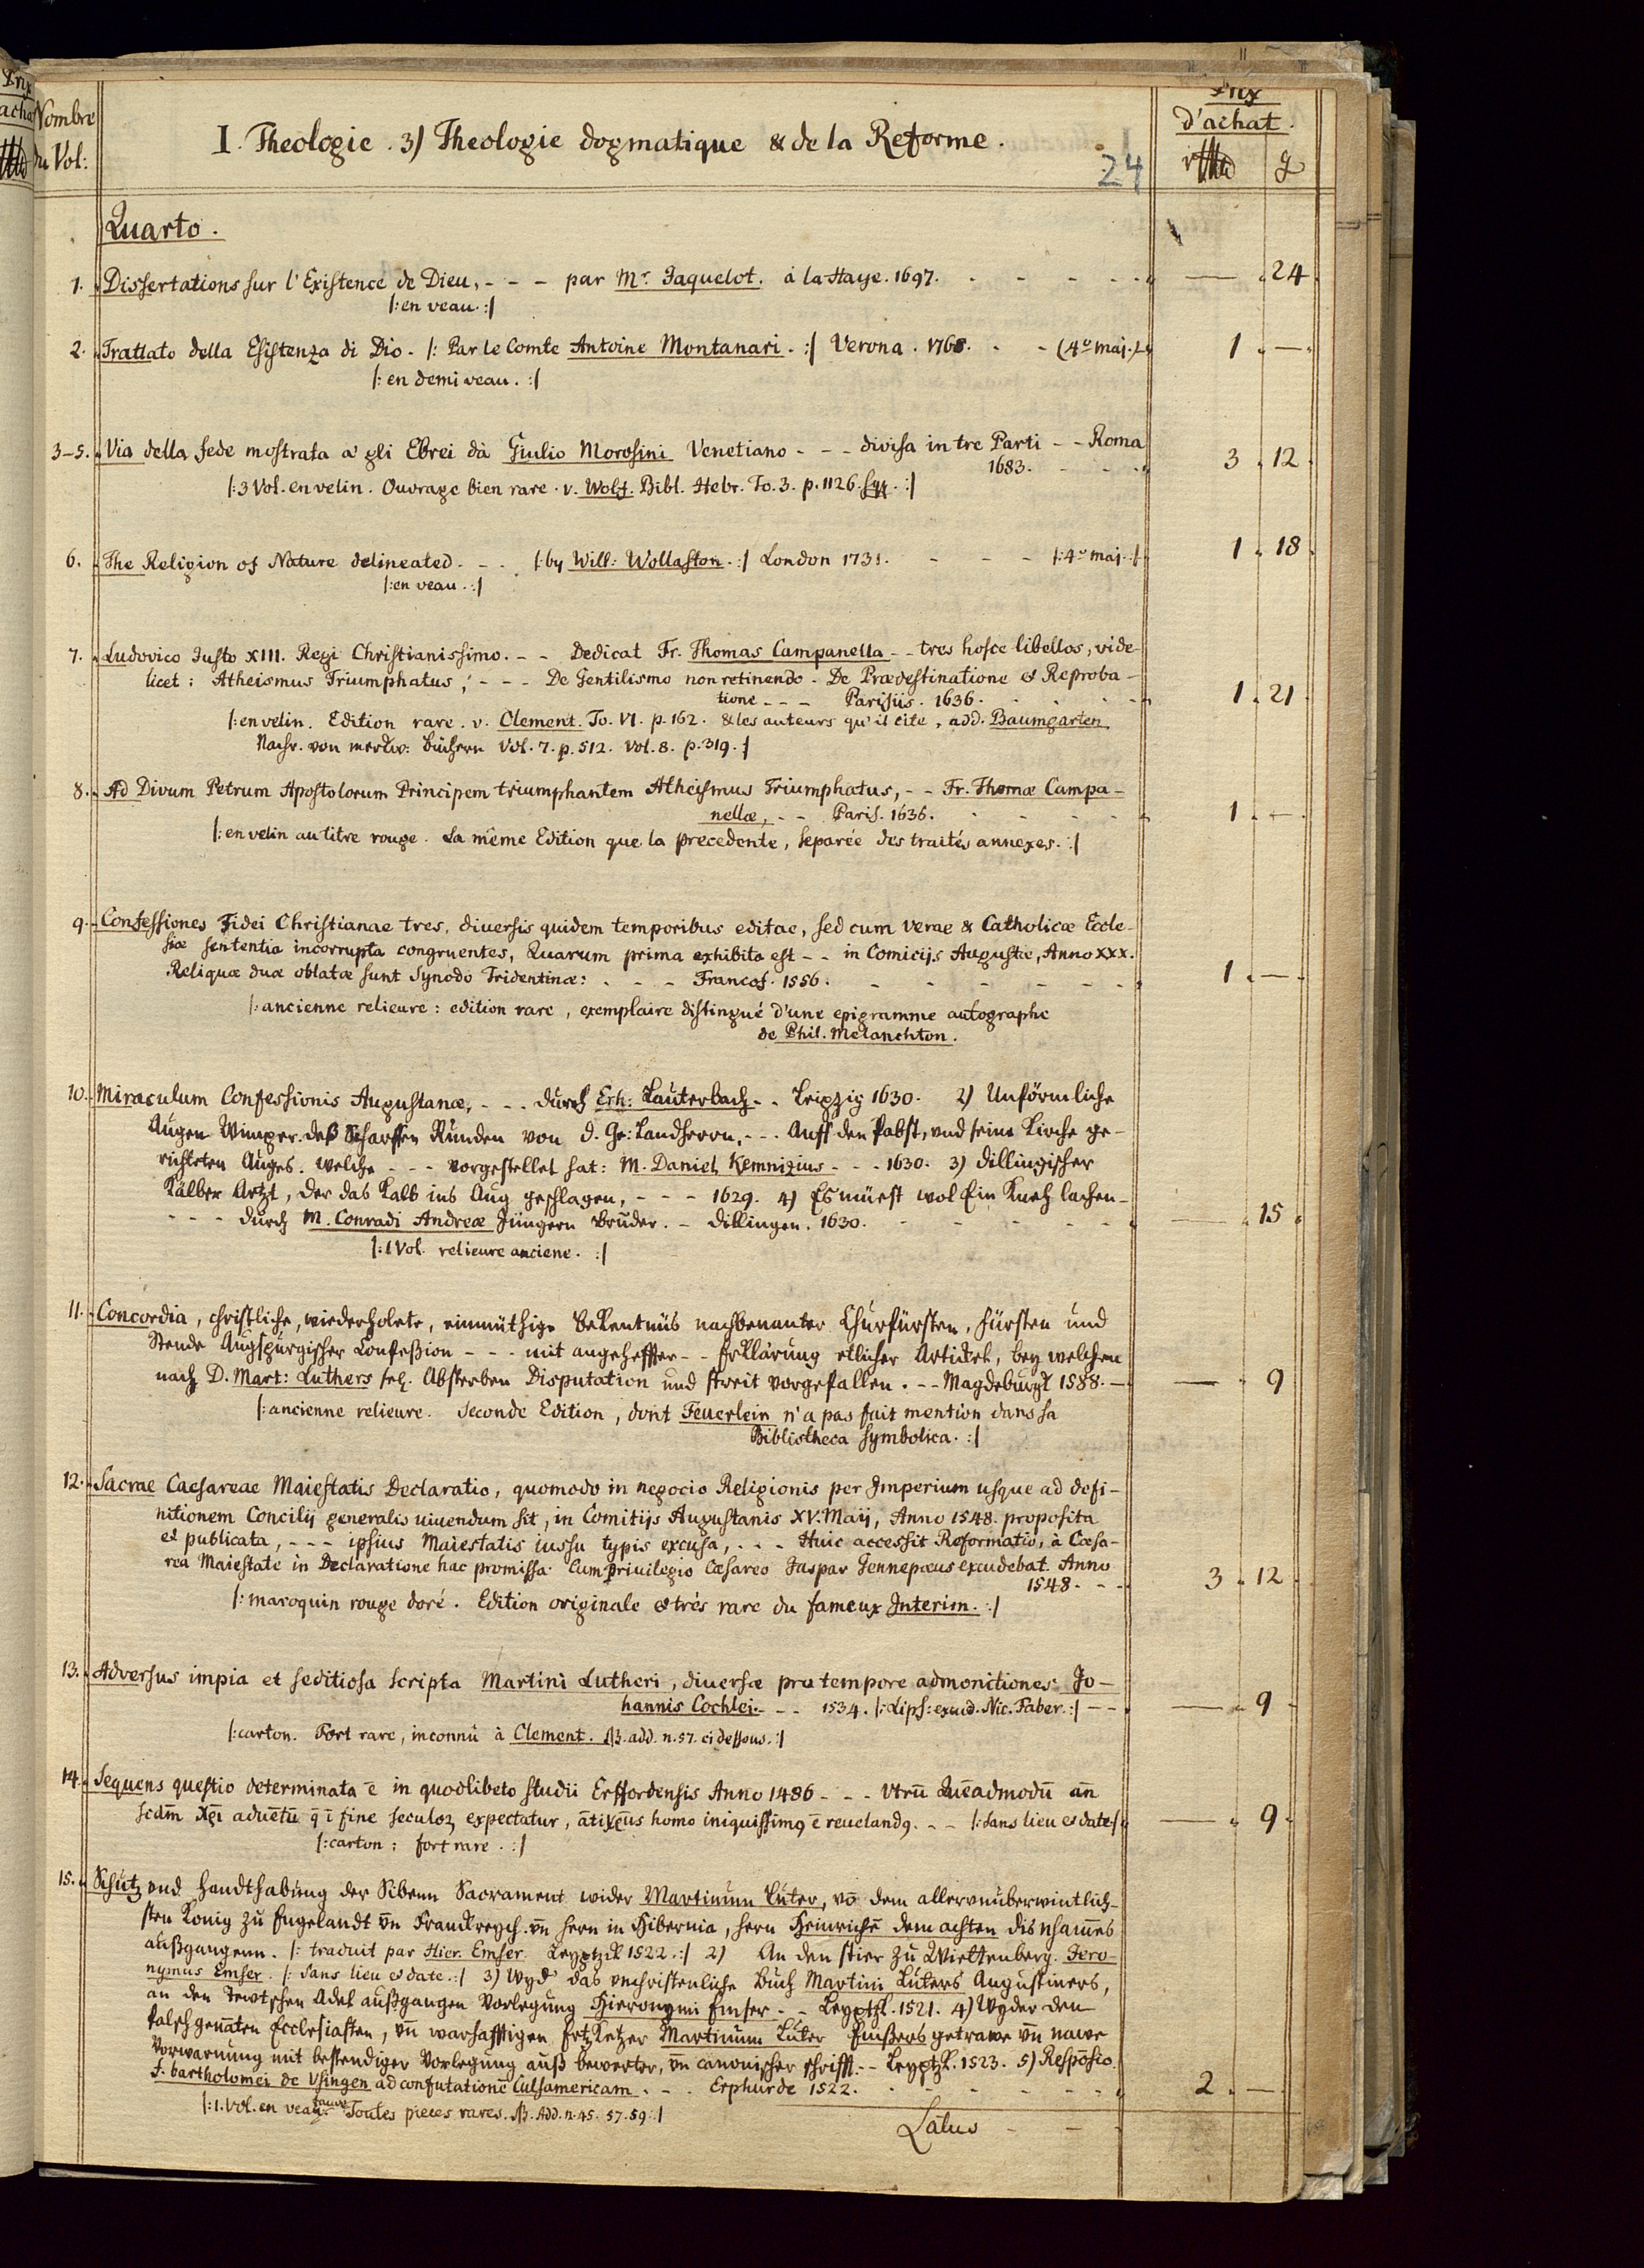 Nombre
du Vol:
I. Theologie. 3) Theologie dogmatique & de la Reforme.
24
Prix
d'achat.
Quarto.
1. Dissertations sur l'Existence de Dieu, - - - par Mr. Jaquelot. à la Haye. 1697. - - - - - 24.
|: en veau. :|
2. Trattato della Esistenza di Dio. |: Par le Comte Antoine Montanari. :| Verona. 1768. - - (4º maj.) 1. —
|: en demi veau. :|
3-5. Via della fede mostrata a' gli Ebrei dà Giulio Morosini Venetiano - - - divisa in tre Parti - - Roma
1683. - - - 3. 12.
|: 3 Vol. en velin. Ouvrage bien rare. v. Wolf. Bibl. Hebr. To. 3. p. 1126. sqq. :|
6. The Religion of Nature delineated. - - |: by Will: Wollaston. :| London 1731. - - - |: 4º maj. :| 1. 18.
|: en veau. :|
7. Ludovico Justo XIII. Regi Christianissimo. - - Dedicat Fr. Thomas Campanella - - tres hosce libellos, vide-
licet: Atheismus Triumphatus, - - - De Gentilismo non retinendo. De Prædestinatione et Reproba-
tione - - - Parisiis. 1636. - - - - 1. 21.
|: en velin. Edition rare. v. Clement. To. VI. p. 162. & les auteurs qu'il cite, add. Baumgarten
Nachr. von merkw: Büchern Vol. 7. p. 512. Vol. 8. p. 319. :|
8. Ad Divum Petrum Apostolorum Principem triumphantem Atheismus Triumphatus, - - Fr. Thomæ Campa-
nellæ, - - Paris. 1636. - - - - 1. —
|: en velin au titre rouge. La même Edition que la precedente, separée des traités annexes. :|
9. Confessiones Fidei Christianae tres, diversis quidem temporibus editae, sed cum verae & Catholicæ Eccle-
siæ sententia incorrupta congruentes, Quarum prima exhibita est - - in Comicijs Augustæ, Anno XXX.
Reliquæ duæ oblatæ sunt Synodo Tridentinæ: - - - Francof. 1556. - - - - - 1. —
|: ancienne relieure: edition rare, exemplaire distingué d'une epigramme autographe
de Phil. Melanchton.
10. Miraculum Confessionis Augustanæ, - - - durch Erh: Lauterbach - - Leipzig 1630. 2) Unförmliche
Augen Wimper deß Scharffen Runden von d. Gr: Landherrn, - - - Auff den Pabst, und seine Kirche ge-
richteten Auges. welche - - - vorgestellet hat: M. Daniel Kemnizius - - - 1630. 3) Dillingischer
Kälber Artzt, der das Kalb ins Aug geschlagen, - - - 1629. 4) Es müest wol Ein Kueh lachen -
- - - durch M. Conradi Andreæ Jüngern Bruder. - Dillingen. 1630. - - - - - 15.
|: 1 Vol. relieure anciene. :|
11. Concordia, christliche, wiederholete, einmüthige Bekentnüs nachbenanter Churfürsten, Fürsten und
Stende Augspurgischer Confeßion - - - mit angeheffter - - Erklärung etlicher Artickel, bey welchen
nach D. Mart: Luthers sel. Absterben Disputation und streit vorgefallen. - - Magdeburgk 1588. — — 9
|: ancienne relieure. Seconde Edition, dont Feuerlein n'a pas fait mention dans sa
Bibliotheca symbolica. :|
12. Sacrae Caesareae Maiestatis Declaratio, quomodo in negocio Religionis per Imperium usque ad defi-
nitionem Concilij generalis uiuendum sit, in Comitijs Augustanis XV. Maij, Anno 1548. proposita
et publicata, - - - ipsius Maiestatis iussu typis excusa, - - - Huic accessit Reformatio, à Cæsa-
rea Maiestate in Declaratione hac promissa. Cum priuilegio Cæsareo Jaspar Gennepæus excudebat. Anno
1548. - - - 3. 12
|: maroquin rouge doré. Edition originale et très rare du fameux Interim. :|
13. Adversus impia et seditiosa scripta Martini Lutheri, diuersæ pro tempore admonitiones. Jo-
hannis Cochlei. - - - 1534. |: Lips: excud. Nic. Faber. :| - - - — 9
|: carton. Fort rare, inconnu à Clement. NB. add. n. 57. ci dessous. :|
14. Sequens questio determinata ē in quodlibeto studii Erffordensis Anno 1486 - - - vtrū Quēadmodū añ
scdm̄ xp̄i aduētū q̄ ī fine seculoꝝ expectatur, ātixp̄us homo iniquissimꝰ ē reuelandꝰ. - - |: Sans lieu et date :| — 9.
|: carton: fort rare. :|
15. Schutz und handthabung der Sibenn Sacrament wider Martinum Luter, vō dem allervnüberwintlich-
sten Konig zu Engelandt vn̄ Franckreych. vn̄ hern in Hibernia, hern Heinrichē dem achten dis nham̄es
außgangenn. |: traduit par Hier. Emser. Leyptzck 1522. :| 2) An den stier zu Wiettenberg. Jero-
nymus Emser. |: Sans lieu et date. :| 3) Wyd' das vnchristenliche buch Martini Luters Augustiners,
an den Tewtschen Adel außgangen Vorlegung Hieronymi Emser - - Leyptzk. 1521. 4) Wyder den
falsch genāten Ecclesiasten, vn̄ warhafftigen Ertzketzer Martinum Luter Emßers getrawe vn̄ nawe
Vorwarnung mit bestendiger Vorlegung auß bewerter, vn̄ canonischer schrifft. - - Leyptzk. 1523. 5) Respōsio
F. bartholomei de Vsingen ad confutationē Culsamericam. - - - Erphurde 1522. - - - - - 2. —
|: 1. Vol. en veau fauve. Toutes pieces rares. NB. Add. n. 45. 57. 59. :|
Latus - - -